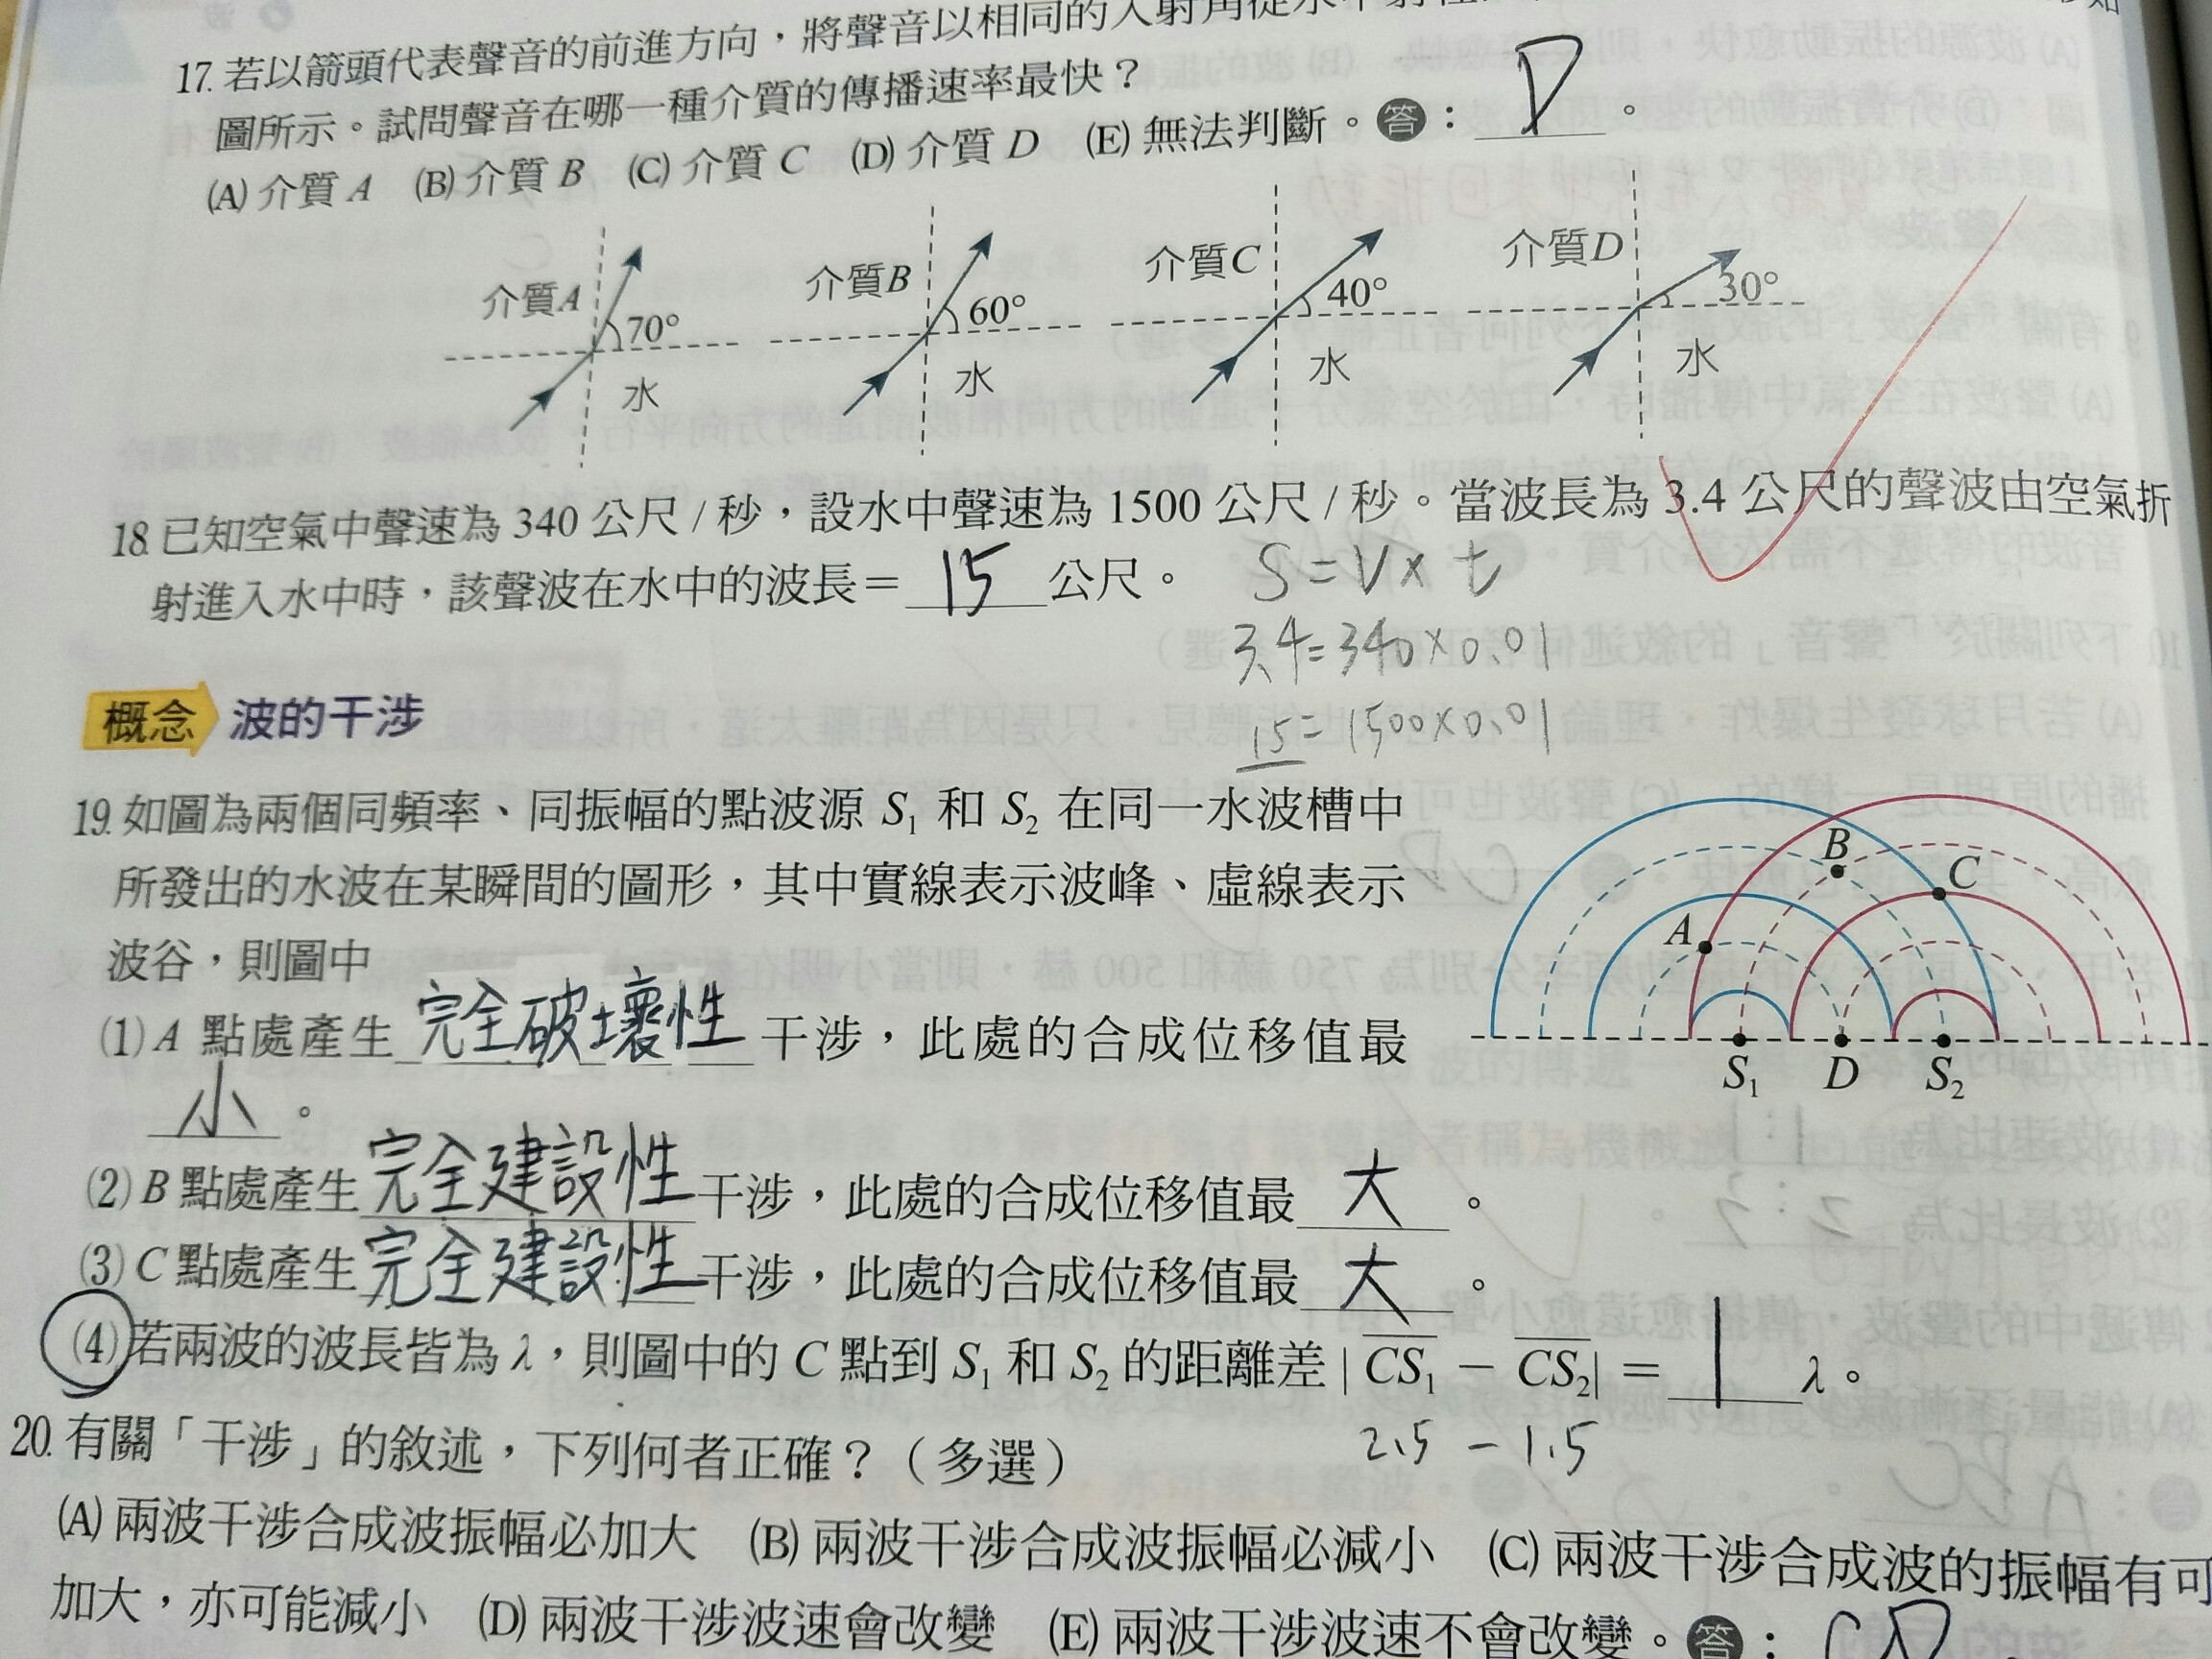 17. 若以箭頭代表聲音的前進方向，將聲音以相同的入射角從水中
圖所示。試問聲音在哪一種介質的傳播速率最快？
(A) 介質 A (B) 介質 B (C) 介質 C (D) 介質 D (E) 無法判斷。答：D。
介質A 70° 水
介質B 60° 水
介質C 40° 水
介質D 30° 水
18. 已知空氣中聲速為 340 公尺 / 秒，設水中聲速為 1500 公尺 / 秒。當波長為 3.4 公尺的聲波由空氣折
射進入水中時，該聲波在水中的波長＝15公尺。
S = V × t
3.4 = 340 × 0.01
15 = 1500 × 0.01
概念 波的干涉
19. 如圖為兩個同頻率、同振幅的點波源 S₁ 和 S₂ 在同一水波槽中
所發出的水波在某瞬間的圖形，其中實線表示波峰、虛線表示
波谷，則圖中
(1) A 點處產生完全破壞性干涉，此處的合成位移值最
小。
(2) B 點處產生完全建設性干涉，此處的合成位移值最大。
(3) C 點處產生完全建設性干涉，此處的合成位移值最大。
(4) 若兩波的波長皆為 λ，則圖中的 C 點到 S₁ 和 S₂ 的距離差 | CS₁ − CS₂ | ＝ 1 λ。
2.5 − 1.5
A B C
S₁ D S₂
20. 有關「干涉」的敘述，下列何者正確？（多選）
(A) 兩波干涉合成波振幅必加大 (B) 兩波干涉合成波振幅必減小 (C) 兩波干涉合成波的振幅有可
加大，亦可能減小 (D) 兩波干涉波速會改變 (E) 兩波干涉波速不會改變。答：CD